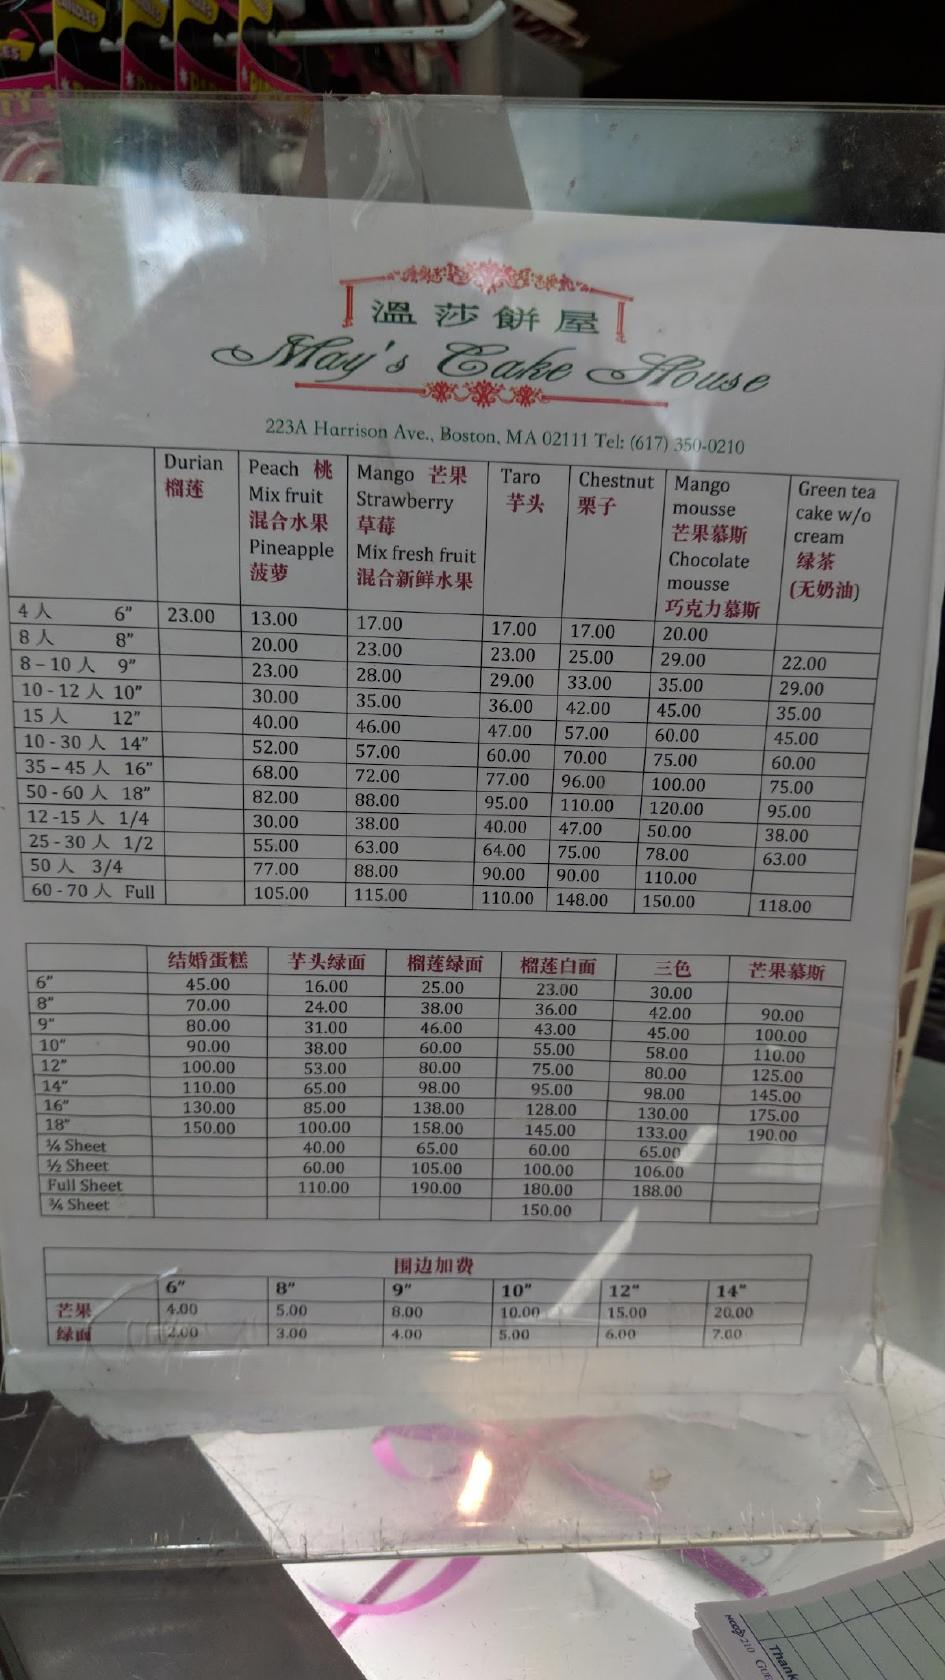 溫莎餅屋
May's Cake House
223A Harrison Ave., Boston, MA 02111 Tel: (617) 350-0210
Durian 榴莲
Peach 桃 Mix fruit 混合水果 Pineapple 菠萝
Mango 芒果 Strawberry 草莓 Mix fresh fruit 混合新鲜水果
Taro 芋头
Chestnut 栗子
Mango mousse 芒果慕斯 Chocolate mousse 巧克力慕斯
Green tea cake w/o cream 绿茶 (无奶油)
4人 6" 23.00 13.00 17.00 17.00 17.00 20.00
8人 8" 20.00 23.00 23.00 25.00 29.00 22.00
8-10人 9" 23.00 28.00 29.00 33.00 35.00 29.00
10-12人 10" 30.00 35.00 36.00 42.00 45.00 35.00
15人 12" 40.00 46.00 47.00 57.00 60.00 45.00
10-30人 14" 52.00 57.00 60.00 70.00 75.00 60.00
35-45人 16" 68.00 72.00 77.00 96.00 100.00 75.00
50-60人 18" 82.00 88.00 95.00 110.00 120.00 95.00
12-15人 1/4 30.00 38.00 40.00 47.00 50.00 38.00
25-30人 1/2 55.00 63.00 64.00 75.00 78.00 63.00
50人 3/4 77.00 88.00 90.00 90.00 110.00
60-70人 Full 105.00 115.00 110.00 148.00 150.00 118.00
结婚蛋糕 芋头绿面 榴莲绿面 榴莲白面 三色 芒果慕斯
6" 45.00 16.00 25.00 23.00 30.00
8" 70.00 24.00 38.00 36.00 42.00 90.00
9" 80.00 31.00 46.00 43.00 45.00 100.00
10" 90.00 38.00 60.00 55.00 58.00 110.00
12" 100.00 53.00 80.00 75.00 80.00 125.00
14" 110.00 65.00 98.00 95.00 98.00 145.00
16" 130.00 85.00 138.00 128.00 130.00 175.00
18" 150.00 100.00 158.00 145.00 133.00 190.00
¼ Sheet 40.00 65.00 60.00 65.00
½ Sheet 60.00 105.00 100.00 106.00
Full Sheet 110.00 190.00 180.00 188.00
¾ Sheet 150.00
围边加费
6" 8" 9" 10" 12" 14"
芒果 4.00 5.00 8.00 10.00 15.00 20.00
绿面 2.00 3.00 4.00 5.00 6.00 7.00